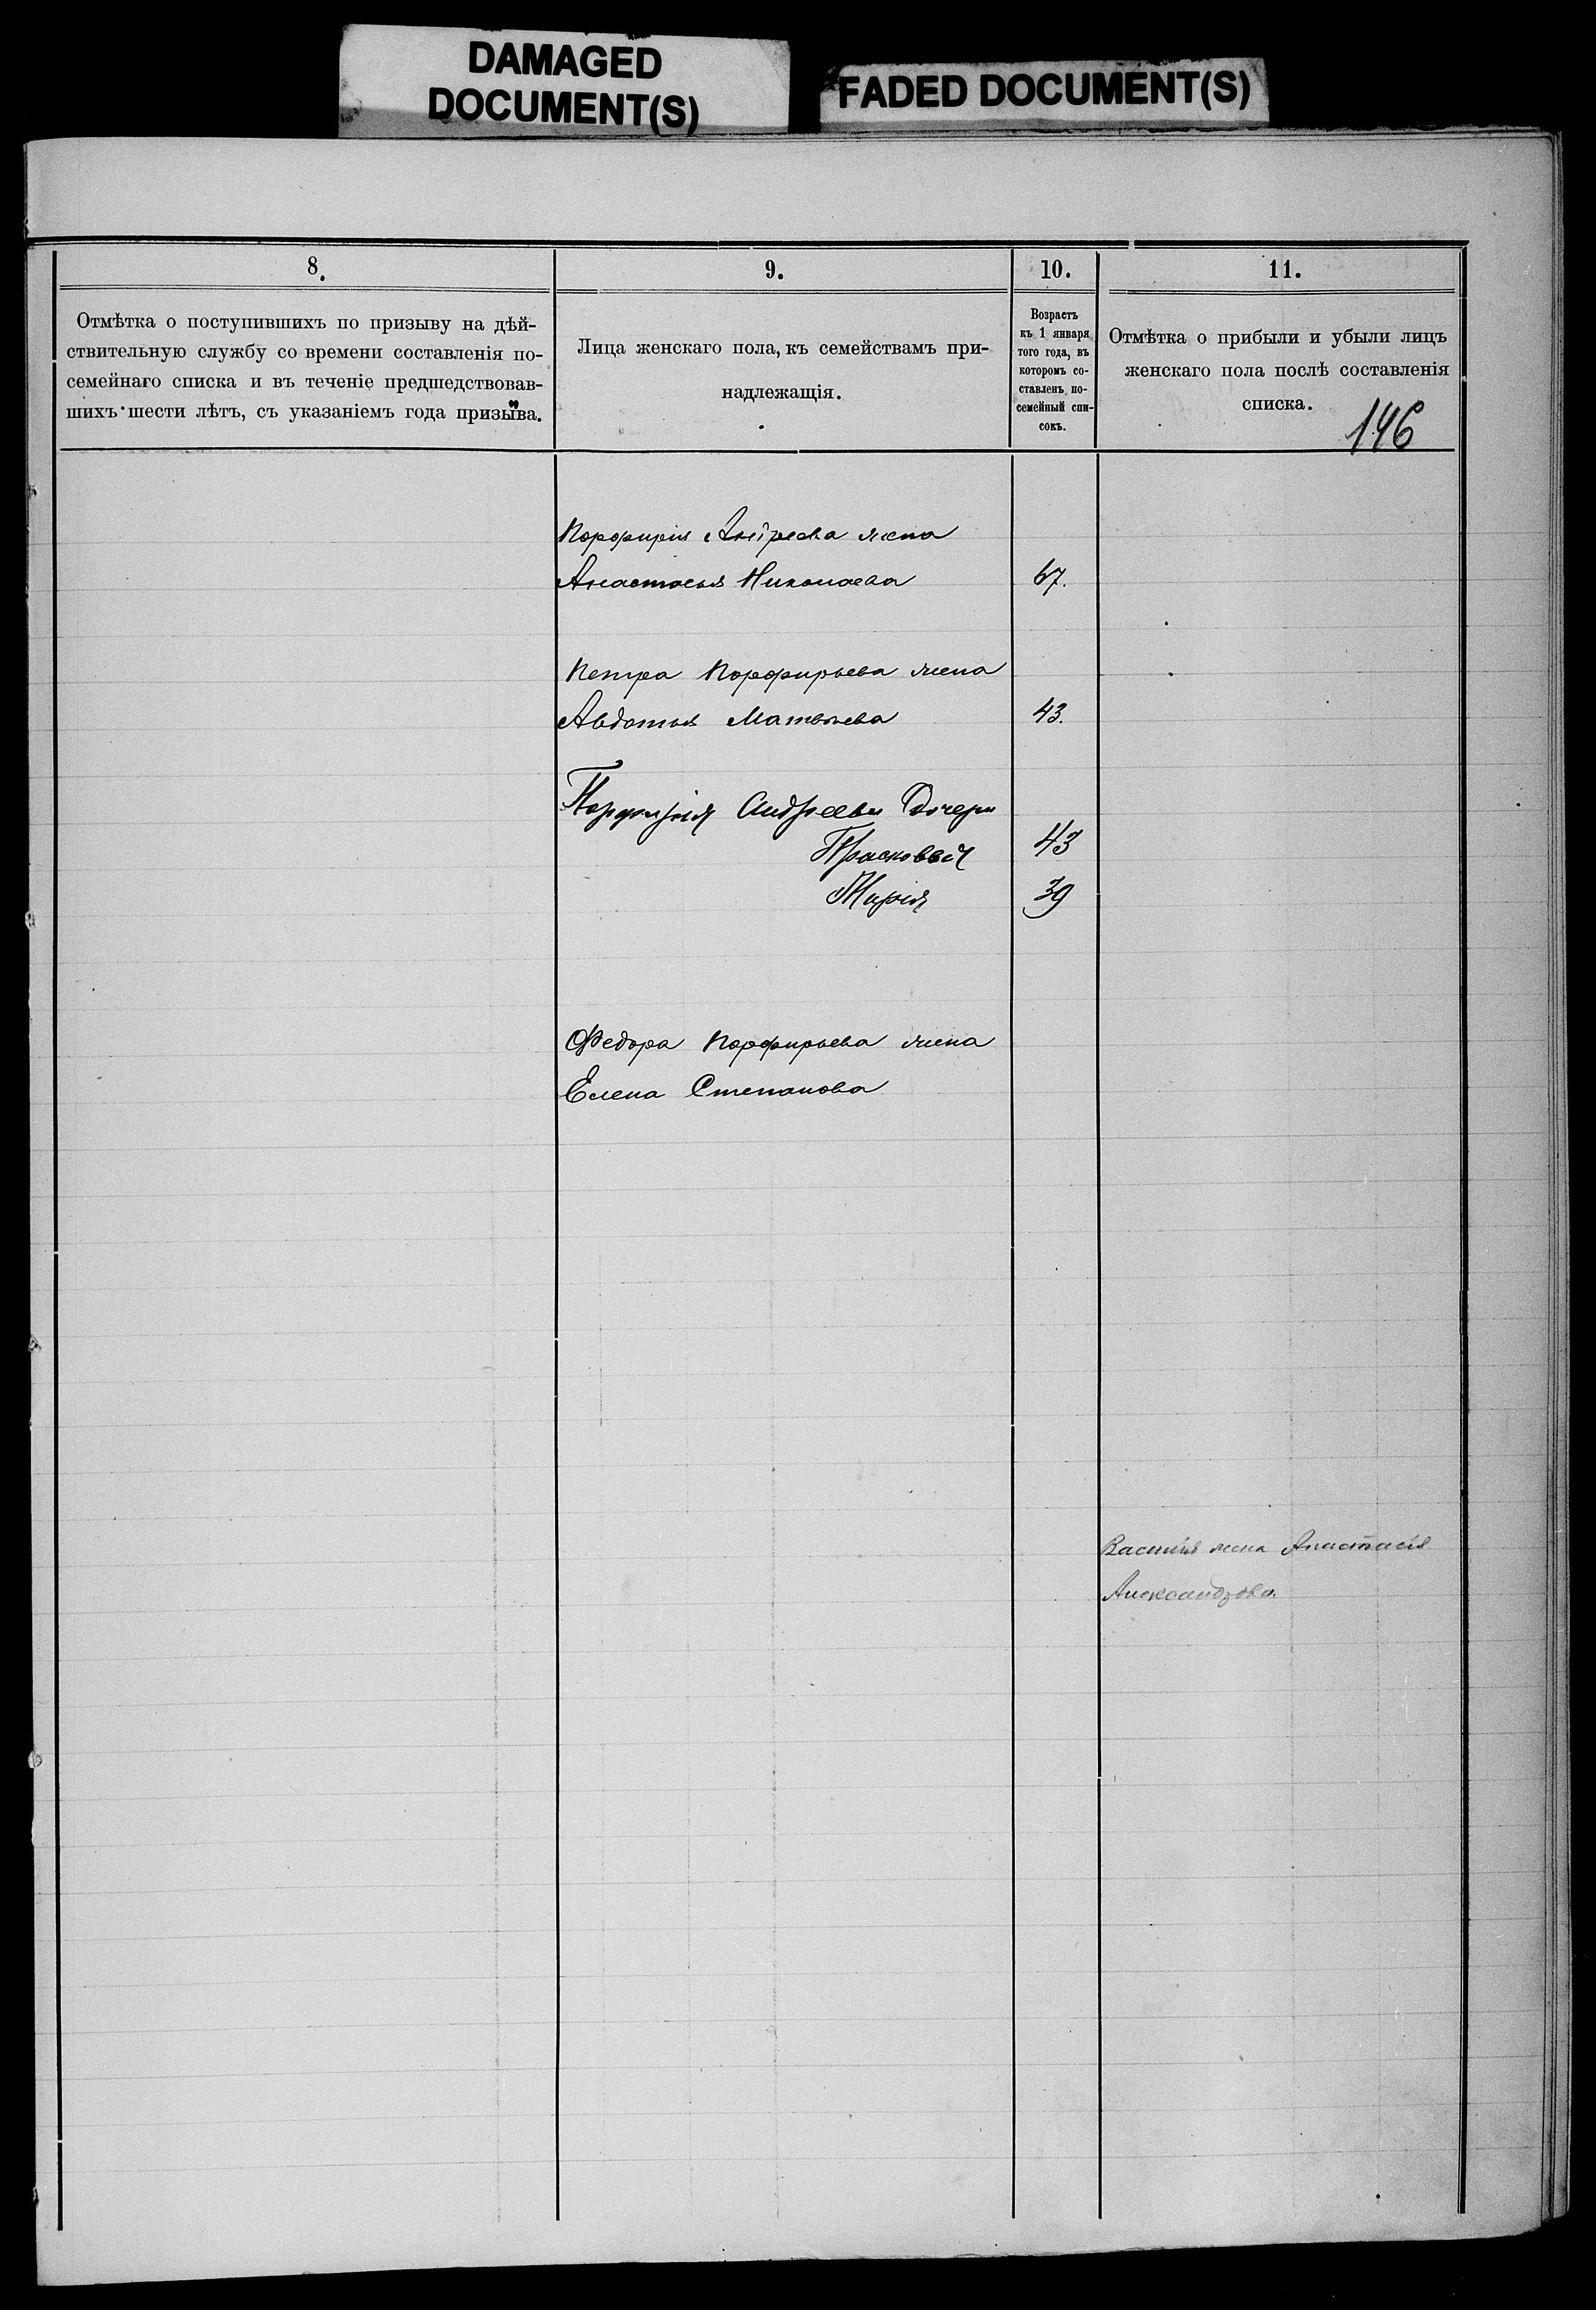 DAMAGED
DOCUMENT(S)
FADED DOCUMENT(S)
8.
Отмѣтка о поступившихъ по призыву на дѣй-
ствительную службу со времени составленія по-
семейнаго списка и въ теченіе предшедствовав-
шихъ шести лѣтъ, съ указаніемъ года призыва.
9.
Лица женскаго пола, къ семействамъ при-
надлежащія.
10.
Возрастъ
къ 1 января
того года, въ
которомъ со-
ставленъ по-
семейный спи-
сокъ.
11.
Отмѣтка о прибыли и убыли лицъ
женскаго пола послѣ составленія
списка.
146
Порфирія Андреева жена
Анастасья Николаева 67.
Петра Порфирьева жена
Авдотья Матвѣева 43.
Порфирія Андреева Дочери
Прасковья 43
Марія 39
Федора Порфирьева жена
Елена Степанова
Василія жена Анастасія
Александрова